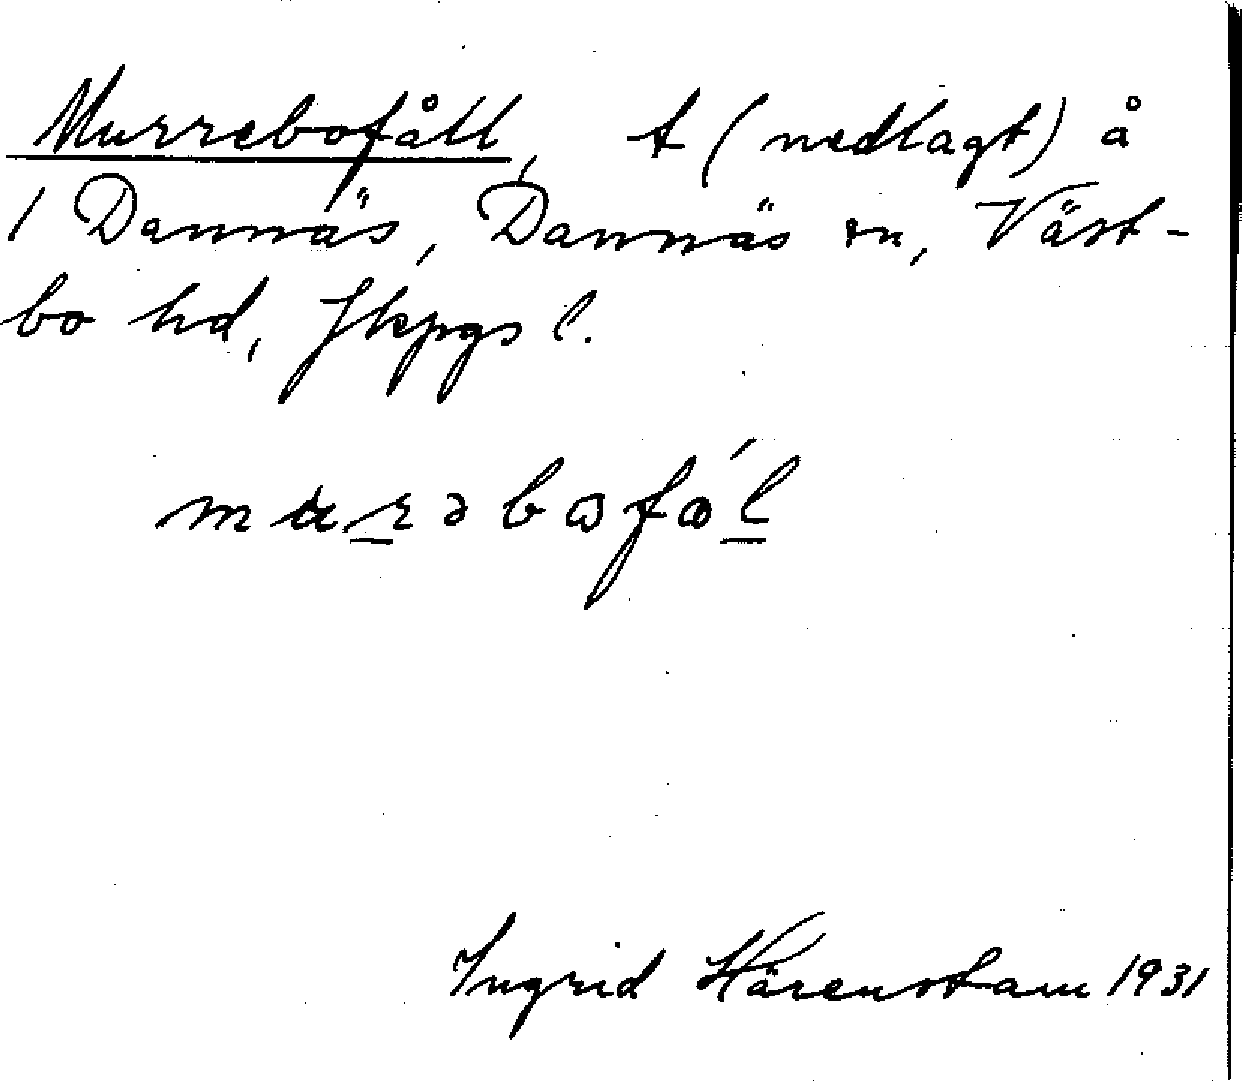 Murrebofåll, t (nedlagt) å
1 Dannäs, Dannäs sn, Väst-
bo hd, Jkpgs l.
Ingrid Härenstam 1931